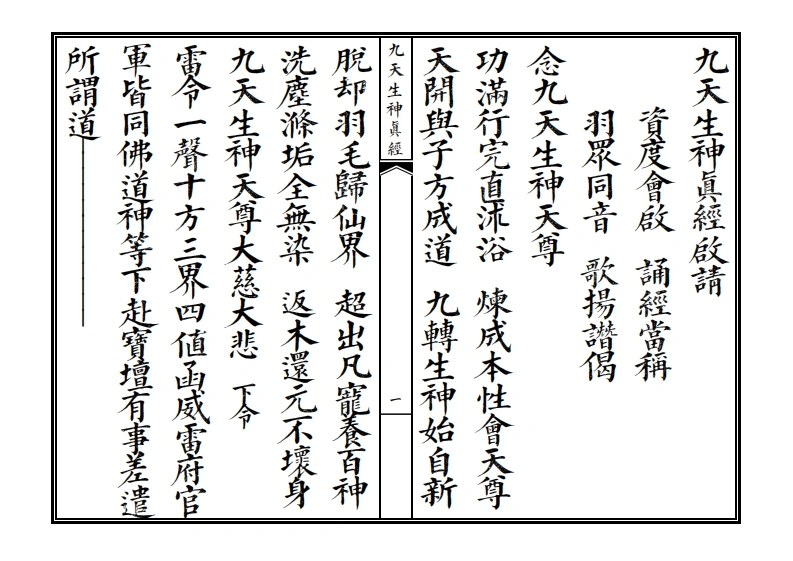 九天生神眞經啟請
資度會啟　誦經當稱
羽眾同音　歌揚讚偈
念九天生神天尊
功滿行完直沠浴　煉成本性會天尊
天開與子方成道　九轉生神始自新
九天生神眞經
一
脫却羽毛歸仙界　超出凡寵養百神
洗塵滌垢全無染　返本還元不壞身
九天生神天尊大慈大悲　下令
雷令一聲十方三界四值函威雷府官
軍皆同佛道神等下赴寶壇有事差遣
所謂道